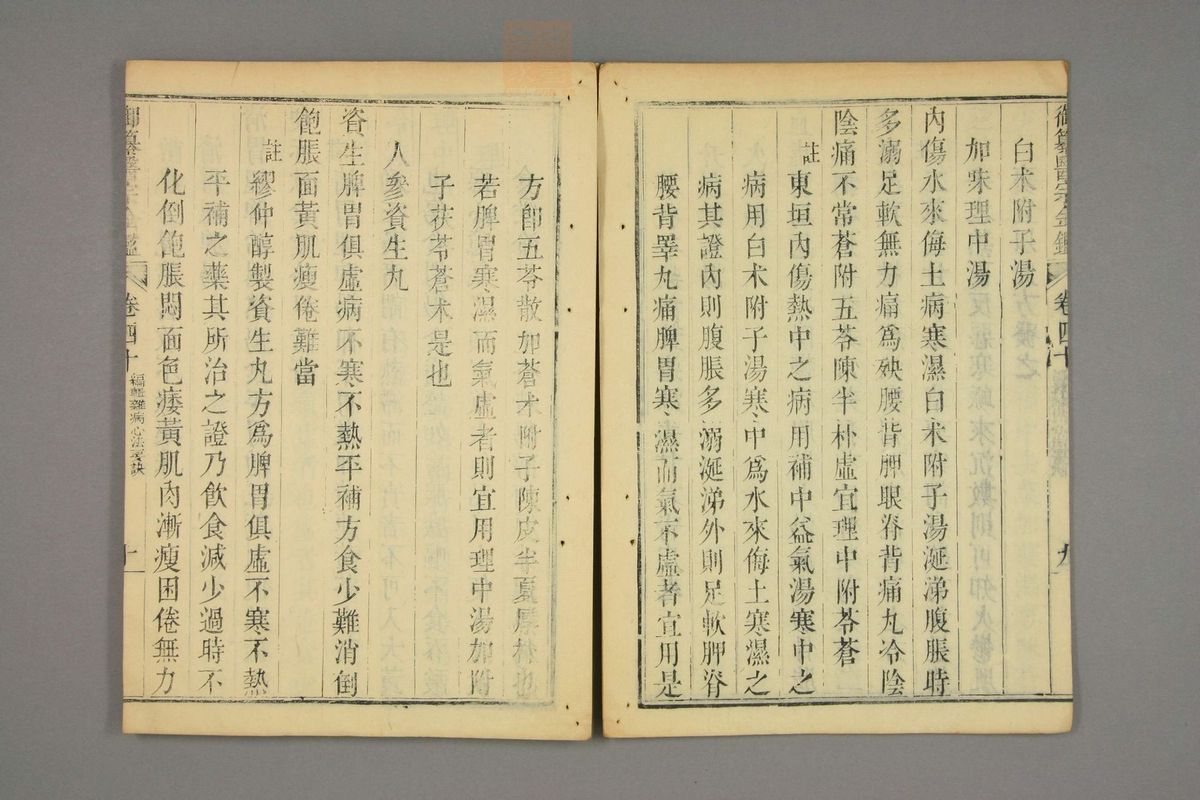 御纂醫宗金鑑 卷四十 九
白朮附子湯
加味理中湯
內傷水來侮土病寒濕白朮附子湯涎涕腹脹時
多溺足軟無力痛為殃腰背胛眼脊背痛丸冷陰
陰痛不常蒼附五苓陳半朴虛宜理中附苓蒼
註東垣內傷熱中之病用補中益氣湯寒中之
病用白朮附子湯寒中為水來侮土寒濕之
病其證內則腹脹多溺涎涕外則足軟胛脊
腰背睪丸痛脾胃寒濕而氣不虛者宜用是
方即五苓散加蒼朮附子陳皮半夏厚朴也
若脾胃寒濕而氣虛者則宜用理中湯加附
子茯苓蒼朮是也
人參資生丸
資生脾胃俱虛病不寒不熱平補方食少難消倒
飽脹面黃肌瘦倦難當
註繆仲醇製資生丸方為脾胃俱虛不寒不熱
平補之藥其所治之證乃飲食減少過時不
化倒飽脹悶面色痿黃肌肉漸瘦困倦無力
御纂醫宗金鑑 卷四十 編輯雜病心法要訣 十一